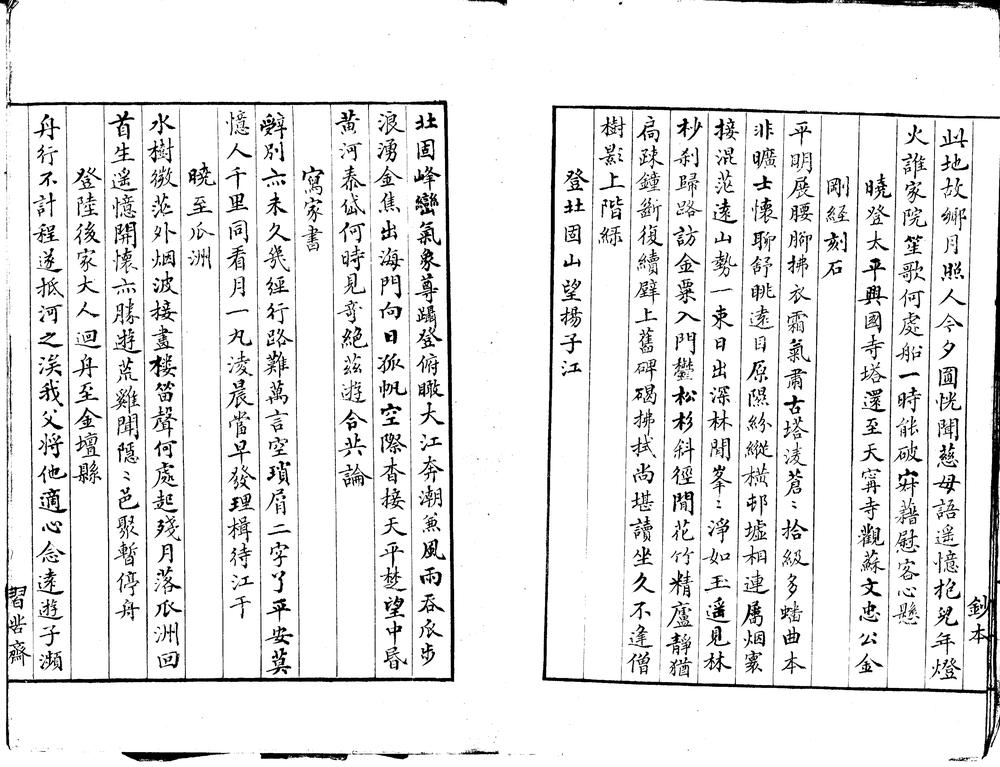 此地故鄉月照人今夕圓恍聞慈母語遥憶抱兒年燈
火誰家院笙歌何處船一時能破寂藉慰客心懸
曉登太平興國寺塔還至天寧寺觀蘇文忠公金
剛經刻石
平明展腰腳拂衣霜氣肅古塔淩蒼〻拾級多蟠曲本
非曠士懷聊舒眺遠目原隰紛縱橫邨墟相連屬烟寰
接混茫遠山勢一束日出深林聞峯〻淨如玉遥見林
杪刹歸路訪金粟入門鬱松杉斜徑閒花竹精廬靜猶
扃疎鐘斷復續壁上舊碑碣拂拭尚堪讀坐久不逢僧
樹影上階緑
登北固山望揚子江
鈔本
北固峰巒氣象尊躡登俯瞰大江奔潮兼風雨吞瓜步
浪湧金焦出海門向日孤帆空際杳接天平楚望中昬
黄河泰岱何時見奇絶兹遊合共論
寫家書
辤別亦未久幾經行路難萬言空瑣屑二字了平安莫
憶人千里同看月一丸淩晨當早發理楫待江干
曉至瓜洲
水樹微茫外烟波接畫樓笛聲何處起殘月落瓜洲回
首生遥憶開懷亦勝遊荒雞聞隱〻邑聚暫停舟
登陸後家大人迴舟至金壇縣
舟行不計程遂抵河之涘我父將他適心念遠遊子瀕
習峕齋